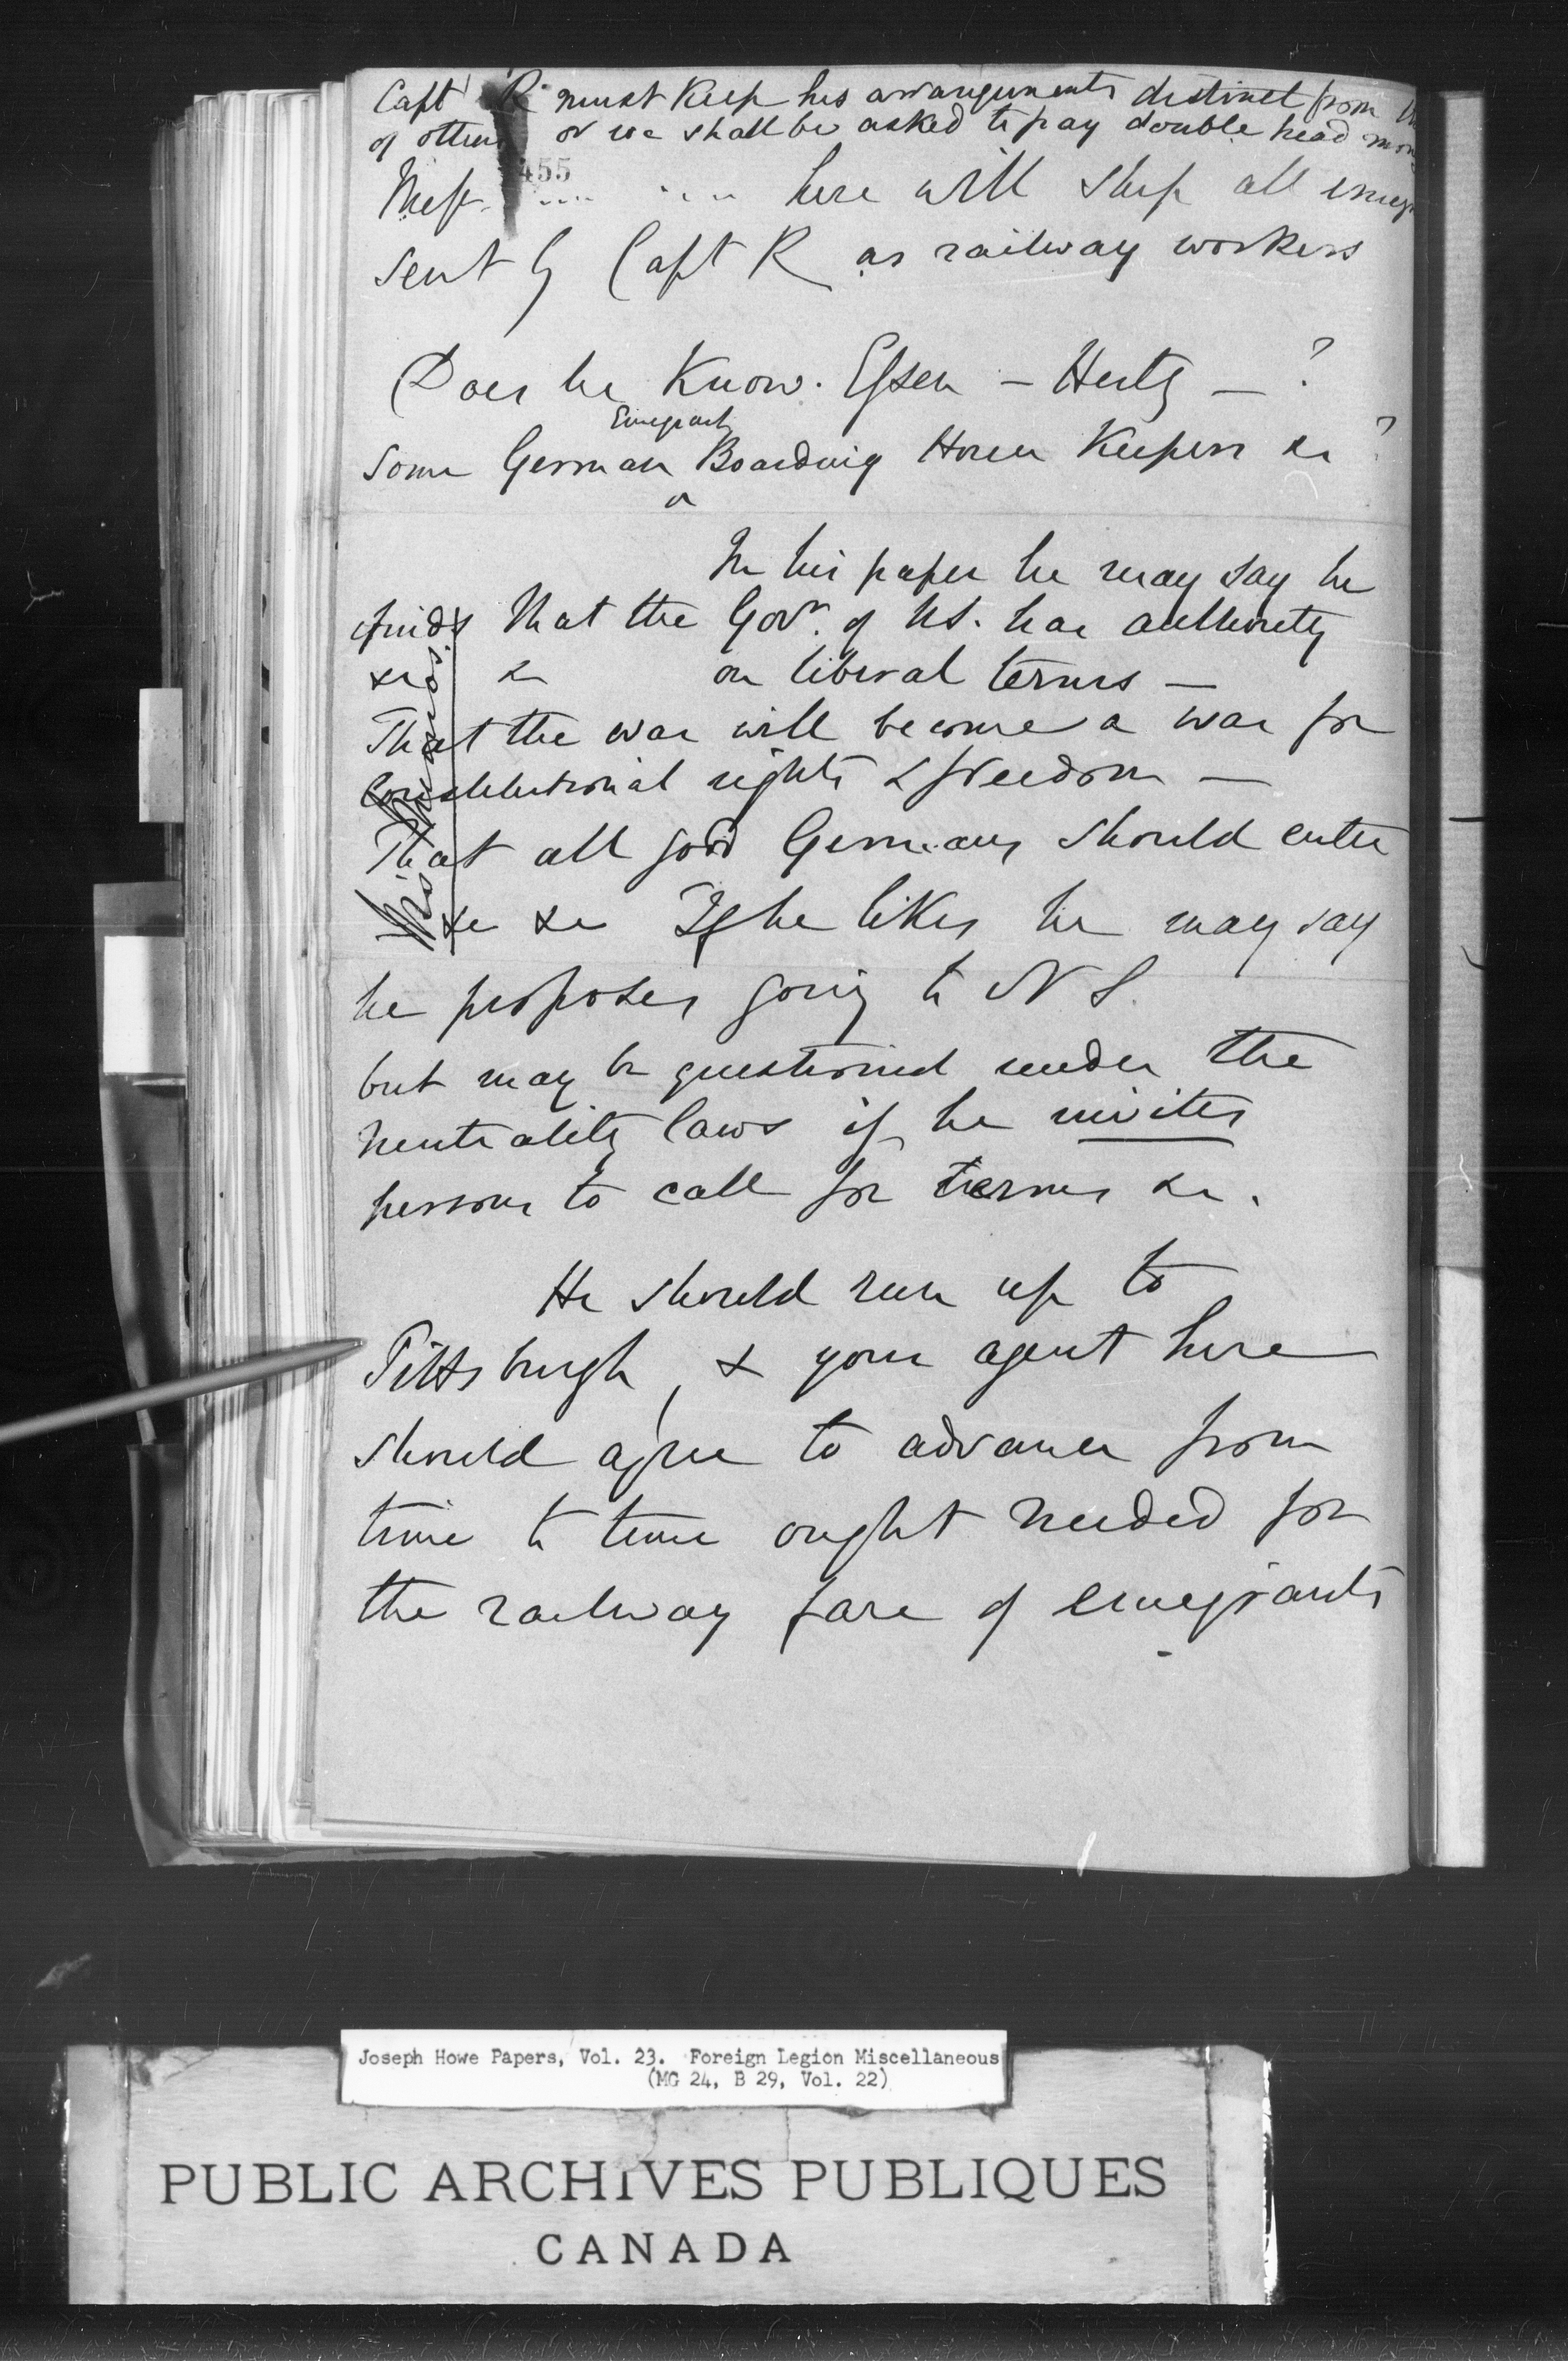 Capt R must Keep his arrangements distinct from
of others or we shall be asked to pay double head
455
Mess. .... ... here will ship all
sent by Capt R as railway workers
Does he Know. Essen - Hertz - ?
Emigrant
some German Boarding House Keepers &c ?
In his paper he may say he
finds that the Govr. of NS. has authority
&c & on liberal terms -
That the war will become a war for
Constitutional rights & freedom -
That all good Germans should enter
&c &c If he likes he may say
he proposes going to N S.
but may be questioned under the
neutrality laws if he invites
persons to call for terms &c.
He should run up to
Pittsburgh, & your agent here
should agree to advance from
time to time ought needed for
the railway fare of emigrants
Joseph Howe Papers, Vol. 23. Foreign Legion Miscellaneous
(MG 24, B 29, Vol. 22)
PUBLIC ARCHIVES PUBLIQUES
CANADA